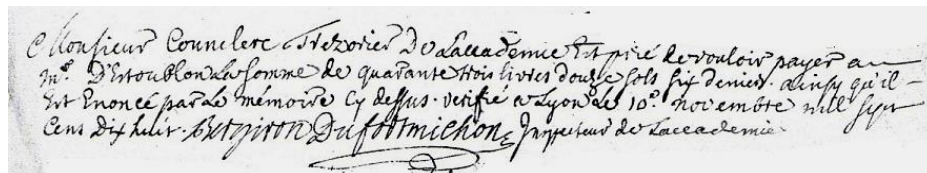 Monsieur Connclerc Trezorier De Laccademie Est prié de vouloir payer au
mr. D'Estoublon La somme de quarante trois livres douze sols six deniers. ainsy qu'il
Est Enoncé par Le mémoire Cy dessus. verifié a Lyon Le 10e. novembre mill sept
Cens Dix huit. Bergiron Dufortmichon Inspecteur de Laccademie